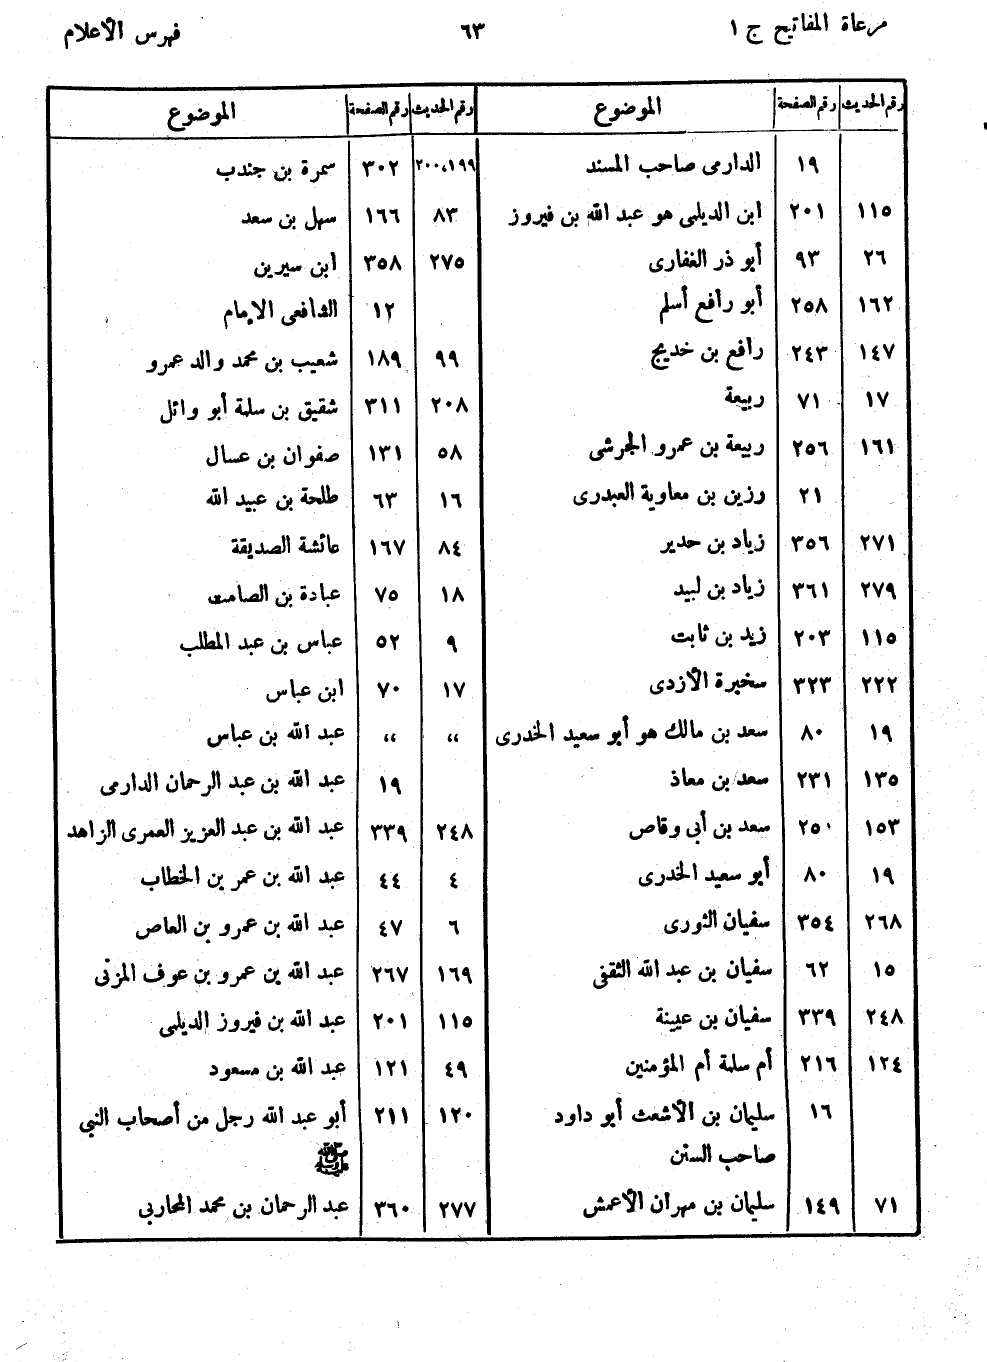 مرعاة المفاتيح ج ١ ٦٣ فهرس الأعلام
رقم الحديث رقم الصفحة الموضوع
١٩ الدارمى صاحب المسند
١١٥ ٢٠١ ابن الديلمى هو عبد الله بن فيروز
٢٦ ٩٣ أبو ذر الغفارى
١٦٢ ٢٥٨ أبو رافع أسلم
١٤٧ ٢٤٣ رافع بن خديج
١٧ ٧١ ربيعة
١٦١ ٢٥٦ ربيعة بن عمرو الجرشى
٢١ رزين بن معاوية العبدرى
٢٧١ ٣٥٦ زياد بن حدير
٢٧٩ ٣٦١ زياد بن لبيد
١١٥ ٢٠٣ زيد بن ثابت
٢٢٢ ٣٢٣ سخبرة الأزدى
١٩ ٨٠ سعد بن مالك هو أبو سعيد الخدرى
١٣٥ ٢٣١ سعد بن معاذ
١٥٣ ٢٥٠ سعد بن أبى وقاص
١٩ ٨٠ أبو سعيد الخدرى
٢٦٨ ٣٥٤ سفيان الثورى
١٥ ٦٢ سفيان بن عبد الله الثقفى
٢٤٨ ٣٣٩ سفيان بن عيينة
١٢٤ ٢١٦ أم سلمة أم المؤمنين
١٦ سليمان بن الأشعث أبو داود
صاحب السنن
٧١ ١٤٩ سليمان بن مهران الأعمش
رقم الحديث رقم الصفحة الموضوع
١٩٩،٢٠٠ ٣٠٢ سمرة بن جندب
٨٣ ١٦٦ سهل بن سعد
٢٧٥ ٣٥٨ ابن سيرين
١٢ الشافعى الإمام
٩٩ ١٨٩ شعيب بن محمد والد عمرو
٢٠٨ ٣١١ شقيق بن سلمة أبو وائل
٥٨ ١٣١ صفوان بن عسال
١٦ ٦٣ طلحة بن عبيد الله
٨٤ ١٦٧ عائشة الصديقة
١٨ ٧٥ عبادة بن الصامت
٩ ٥٢ عباس بن عبد المطلب
١٧ ٧٠ ابن عباس
،، ،، عبد الله بن عباس
١٩ عبد الله بن عبد الرحمان الدارمى
٢٤٨ ٣٣٩ عبد الله بن عبد العزيز العمرى الزاهد
٤ ٤٤ عبد الله بن عمر بن الخطاب
٦ ٤٧ عبد الله بن عمرو بن العاص
١٦٩ ٢٦٧ عبد الله بن عمرو بن عوف المزنى
١١٥ ٢٠١ عبد الله بن فيروز الديلمى
٤٩ ١٢١ عبد الله بن مسعود
١٢٠ ٢١١ أبو عبد الله رجل من أصحاب النبي
ﷺ
٢٧٧ ٣٦٠ عبد الرحمان بن محمد المحاربى